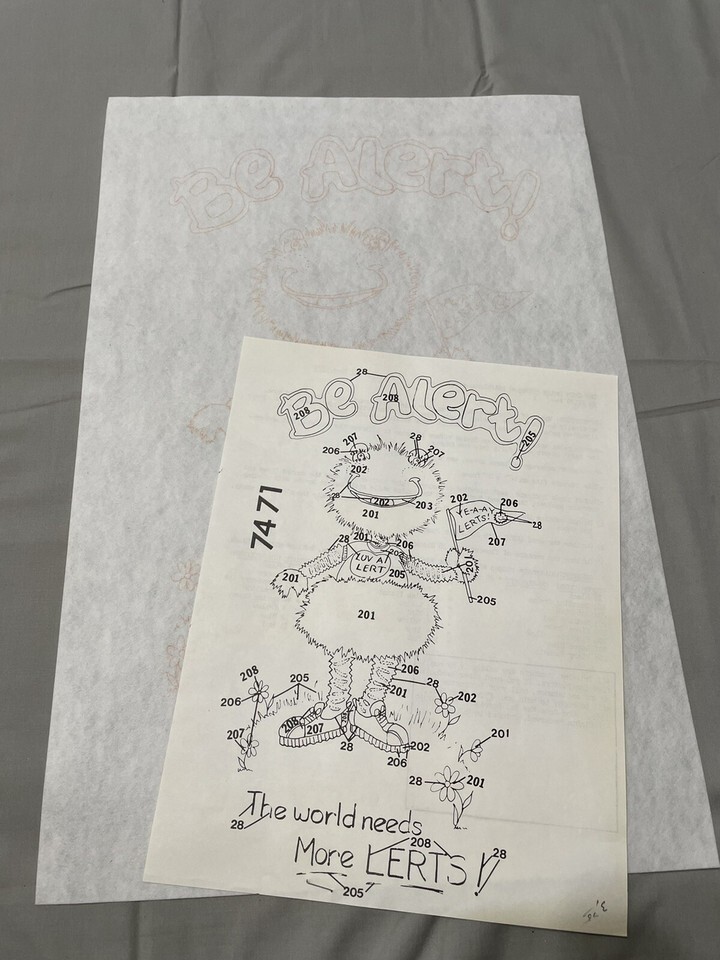 Be Alert!
28
208
208
Be Alert!
205
207
28
206
207
202
28
202
203
201
202
206
YE-A-AY
LERTS!
28
207
7471
28
201
206
202
LUV A
LERT
205
201
201
205
201
206
28
201
208
205
206
202
207
208
207
28
202
206
201
28
201
The world needs
28
208
More LERTS!
28
205